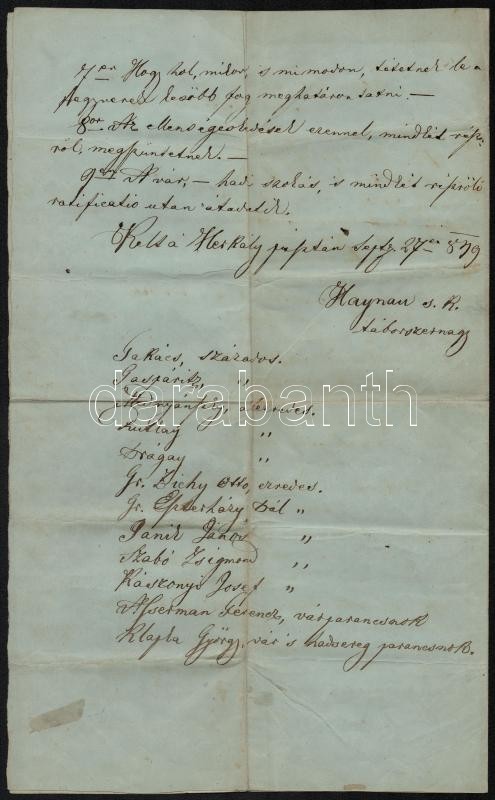 7er Hogy hol, mikor, 's mi modon, tétetnek le a
fegyverek később fog meghatároztatni. —
8or Az ellenségeskedések ezennel, mindkét rész-
ről, megszüntetnek. —
9er A vár, — hadi szokás, 's mindkét részrőli
ratificatio után átadatik.
Kelt a Herkály pusztán Sept. 27én 849
Haynau s. k.
táborszernagy
Takács, százados.
Gaspáritz, "
Mednyánszky, alezredes.
Ruttkay "
Drágay "
Gr. Zichy Otto, ezredes.
Gr. Eszterházy Pál "
Janik János "
Szabó Zsigmond "
Kászonyi Josef "
Asserman Ferencz, várparancsnok
Klapka György, vár 's hadsereg parancsnok.
darabanth